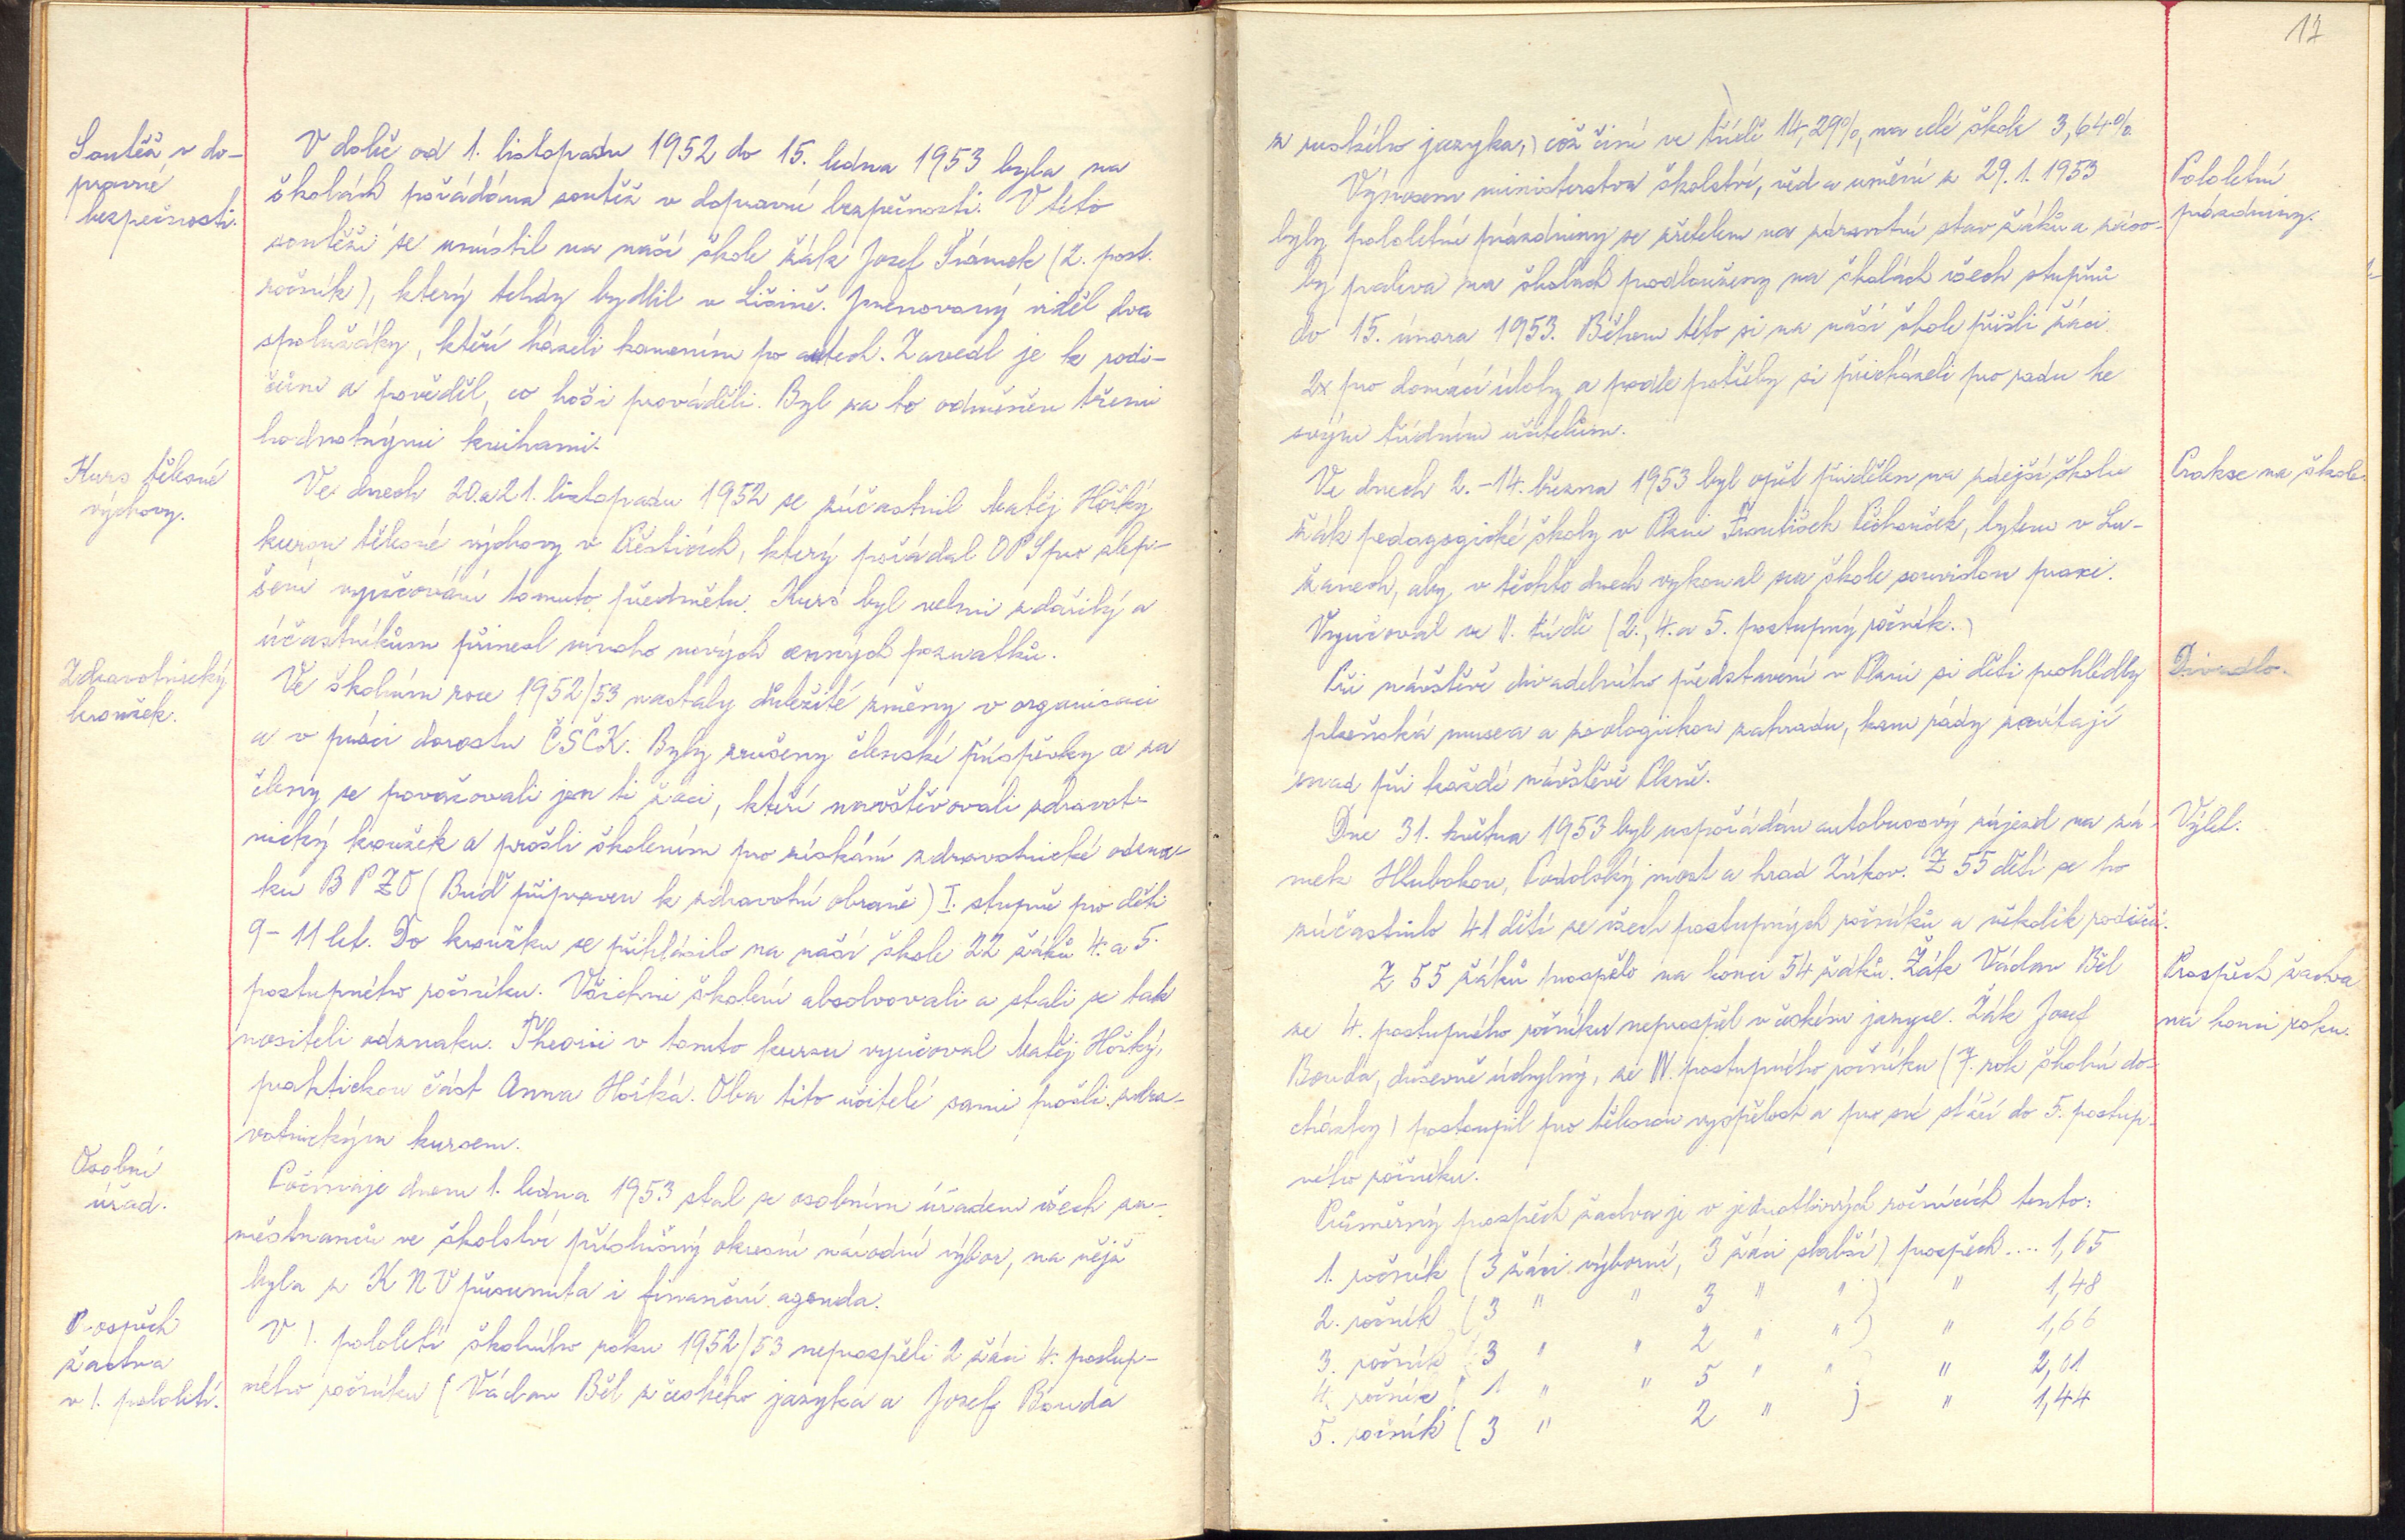 Soutěž v do-
pravní
bezpečnosti.
V době od 1. listopadu 1952 do 15. ledna 1953 byla na
školách pořádána soutěž v dopravní bezpečnosti. V této
soutěži se umístil na naší škole žák Josef Šrámek (2. post.
ročník), který tehdy bydlil v Lišině. Jmenovaný viděl dva
spolužáky, kteří házeli kamením po autech. Zavedl je k rodi-
čům a pověděl, co hoši prováděli. Byl za to odměněn třemi
hodnotnými knihami.
Kurs tělesné
výchovy.
Ve dnech 20. a 21. listopadu 1952 se zúčastnil Matěj Hošký
kursu tělesné výchovy v Přešticích, který pořádal OPS pro zlep-
šení vyučování tomuto předmětu. Kurs byl velmi zdařilý a
účastníkům přinesl mnoho nových cenných poznatků.
Zdravotnický
kroužek.
Ve školním roce 1952/53 nastaly důležité změny v organisaci
a v práci dorostu ČSČK. Byly zrušeny členské příspěvky a za
členy se považovali jen ti žáci, kteří navštěvovali zdravot-
nický kroužek a prošli školením pro získání zdravotnické odzna-
ku BPZO (Buď připraven k zdravotní obraně) I. stupně pro děti
9-11 let. Do kroužku se přihlásilo na naší škole 22 žáků 4. a 5.
postupného ročníku. Všichni školení absolvovali a stali se tak
nositeli odznaku. Theorii v tomto kursu vyučoval Matěj Hošký,
praktickou část Anna Hošká. Oba tito učitelé sami prošli zdra-
votnickým kursem.
Osobní
úřad.
Počínaje dnem 1. ledna 1953 stal se osobním úřadem všech za-
městnanců ve školství příslušný okresní národní výbor, na nějž
byla z KNV přesunuta i finanční agenda.
Prospěch
žactva
v 1. pololetí.
V 1. pololetí školního roku 1952/53 neprospěli 2 žáci 4. postup-
ného ročníku (Václav Běl z českého jazyka a Josef Bouda
17
z ruského jazyka,) což činí ve třídě 14,29%, na celé škole 3,64%.
Pololetní
prázdniny.
Výnosem ministerstva školství, věd a umění z 29. 1. 1953
byly pololetní prázdniny se zřetelem na zdravotní stav žáků a záso-
by paliva na školách prodlouženy na školách všech stupňů
do 15. února 1953. Během této si na naší škole přišli žáci
2x pro domácí úlohy a podle potřeby si přicházeli pro radu ke
svým třídním učitelům.
Prakse na škole.
Ve dnech 2.-14. března 1953 byl opět přidělen na zdejší školu
žák pedagogické školy v Plzni František Pěchouček, bytem v Lu-
žanech, aby v těchto dnech vykonal na škole souvislou praxi.
Vyučoval ve II. třídě (2., 4. a 5. postupný ročník.)
Divadlo.
Při návštěvě divadelního představení v Plzni si děti prohlédly
plzeňská musea a zoologickou zahradu, kam rády zavítají
snad při každé návštěvě Plzně.
Výlet.
Dne 31. května 1953 byl uspořádán autobusový zájezd na zá-
mek Hlubokou, Podolský most a hrad Zvíkov. Z 55 dětí se ho
zúčastnilo 41 dětí ze všech postupných ročníků a několik rodičů.
Prospěch žactva
na konci roku.
Z 55 žáků prospělo na konci 54 žáků. Žák Václav Běl
ze 4. postupného ročníku neprospěl v českém jazyce. Žák Josef
Bouda, duševně úchylný, ze IV. postupného ročníku (7. rok školní do-
cházky) postoupil pro tělesnou vyspělost a pro své stáří do 5. postup-
ného ročníku.
Průměrný prospěch žactva je v jednotlivých ročnících tento:
1. ročník (3 žáci výborní, 3 žáci slabší) prospěch .... 1,65
2. ročník (3 " " 3 " " ) " 1,48
3. ročník (3 " " 2 " " ) " 1,66
4. ročník (1 " " 5 " " ) " 2,01
5. ročník (3 " 2 " ) " 1,44